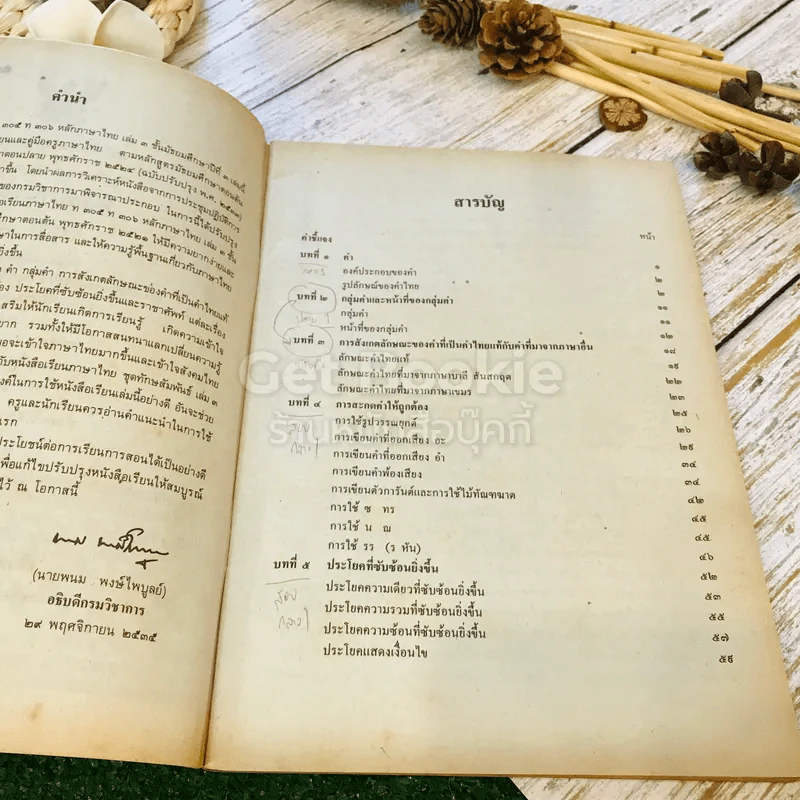 คำนำ
๓๐๕ ท ๓๐๖ หลักภาษาไทย เล่ม ๓ ชั้นมัธยมศึกษาปีที่ ๓ เล่มนี้
ยนและคู่มือครูภาษาไทย ตามหลักสูตรมัธยมศึกษาตอนต้น
าตอนปลาย พุทธศักราช ๒๕๒๔ (ฉบับปรับปรุง พ.ศ. ๒๕๓๓)
าขึ้น โดยนำผลการวิเคราะห์หนังสือจากการประชุมปฏิบัติการ
ของกรมวิชาการมาพิจารณาประกอบ ในการนี้ได้ปรับปรุง
อเรียนภาษาไทย ท ๓๐๕ ท ๓๐๖ หลักภาษาไทย เล่ม ๓ ชั้น
ศึกษาตอนต้น พุทธศักราช ๒๕๒๑ ให้มีความยากง่ายและ
ษาในการสื่อสาร และให้ความรู้พื้นฐานเกี่ยวกับภาษาไทย
ยิ่งขึ้น
คำ กลุ่มคำ การสังเกตลักษณะของคำที่เป็นคำไทยแท้
ง ประโยคที่ซับซ้อนยิ่งขึ้นและราชาศัพท์ แต่ละเรื่อง
เสริมให้นักเรียนเกิดการเรียนรู้ เกิดความเข้าใจ
ยาก รวมทั้งให้มีโอกาสสนทนาแลกเปลี่ยนความรู้
อจะเข้าใจภาษาไทยมากขึ้นและเข้าใจสังคมไทย
กับหนังสือเรียนภาษาไทย ชุดทักษสัมพันธ์ เล่ม ๓
งค์ในการใช้หนังสือเรียนเล่มนี้อย่างดี อันจะช่วย
ครูและนักเรียนควรอ่านคำแนะนำในการใช้
แรก
ประโยชน์ต่อการเรียนการสอนได้เป็นอย่างดี
เพื่อแก้ไขปรับปรุงหนังสือเรียนให้สมบูรณ์
ไว้ ณ โอกาสนี้
(นายพนม พงษ์ไพบูลย์)
อธิบดีกรมวิชาการ
๒๙ พฤศจิกายน ๒๕๓๕
สารบัญ
คำชี้แจง หน้า
บทที่ ๑ คำ ๑
องค์ประกอบของคำ ๒
รูปลักษณ์ของคำไทย ๒
บทที่ ๒ กลุ่มคำและหน้าที่ของกลุ่มคำ ๑๑
กลุ่มคำ ๑๒
หน้าที่ของกลุ่มคำ ๑๒
บทที่ ๓ การสังเกตลักษณะของคำที่เป็นคำไทยแท้กับคำที่มาจากภาษาอื่น ๑๘
ลักษณะคำไทยแท้ ๑๙
ลักษณะคำไทยที่มาจากภาษาบาลี สันสกฤต ๒๐
ลักษณะคำไทยที่มาจากภาษาเขมร ๒๓
บทที่ ๔ การสะกดคำให้ถูกต้อง ๒๕
การใช้รูปวรรณยุกต์ ๒๖
การเขียนคำที่ออกเสียง อะ ๒๙
การเขียนคำที่ออกเสียง อำ ๓๔
การเขียนคำพ้องเสียง ๓๔
การเขียนตัวการันต์และการใช้ไม้ทัณฑฆาต ๔๒
การใช้ ซ ทร ๔๕
การใช้ น ณ ๔๕
การใช้ รร (ร หัน) ๔๖
บทที่ ๕ ประโยคที่ซับซ้อนยิ่งขึ้น ๕๒
ประโยคความเดียวที่ซับซ้อนยิ่งขึ้น ๕๓
ประโยคความรวมที่ซับซ้อนยิ่งขึ้น ๕๕
ประโยคความซ้อนที่ซับซ้อนยิ่งขึ้น ๕๗
ประโยคแสดงเงื่อนไข ๕๙
GetBookie
ร้านหนังสือบุ๊คกี้